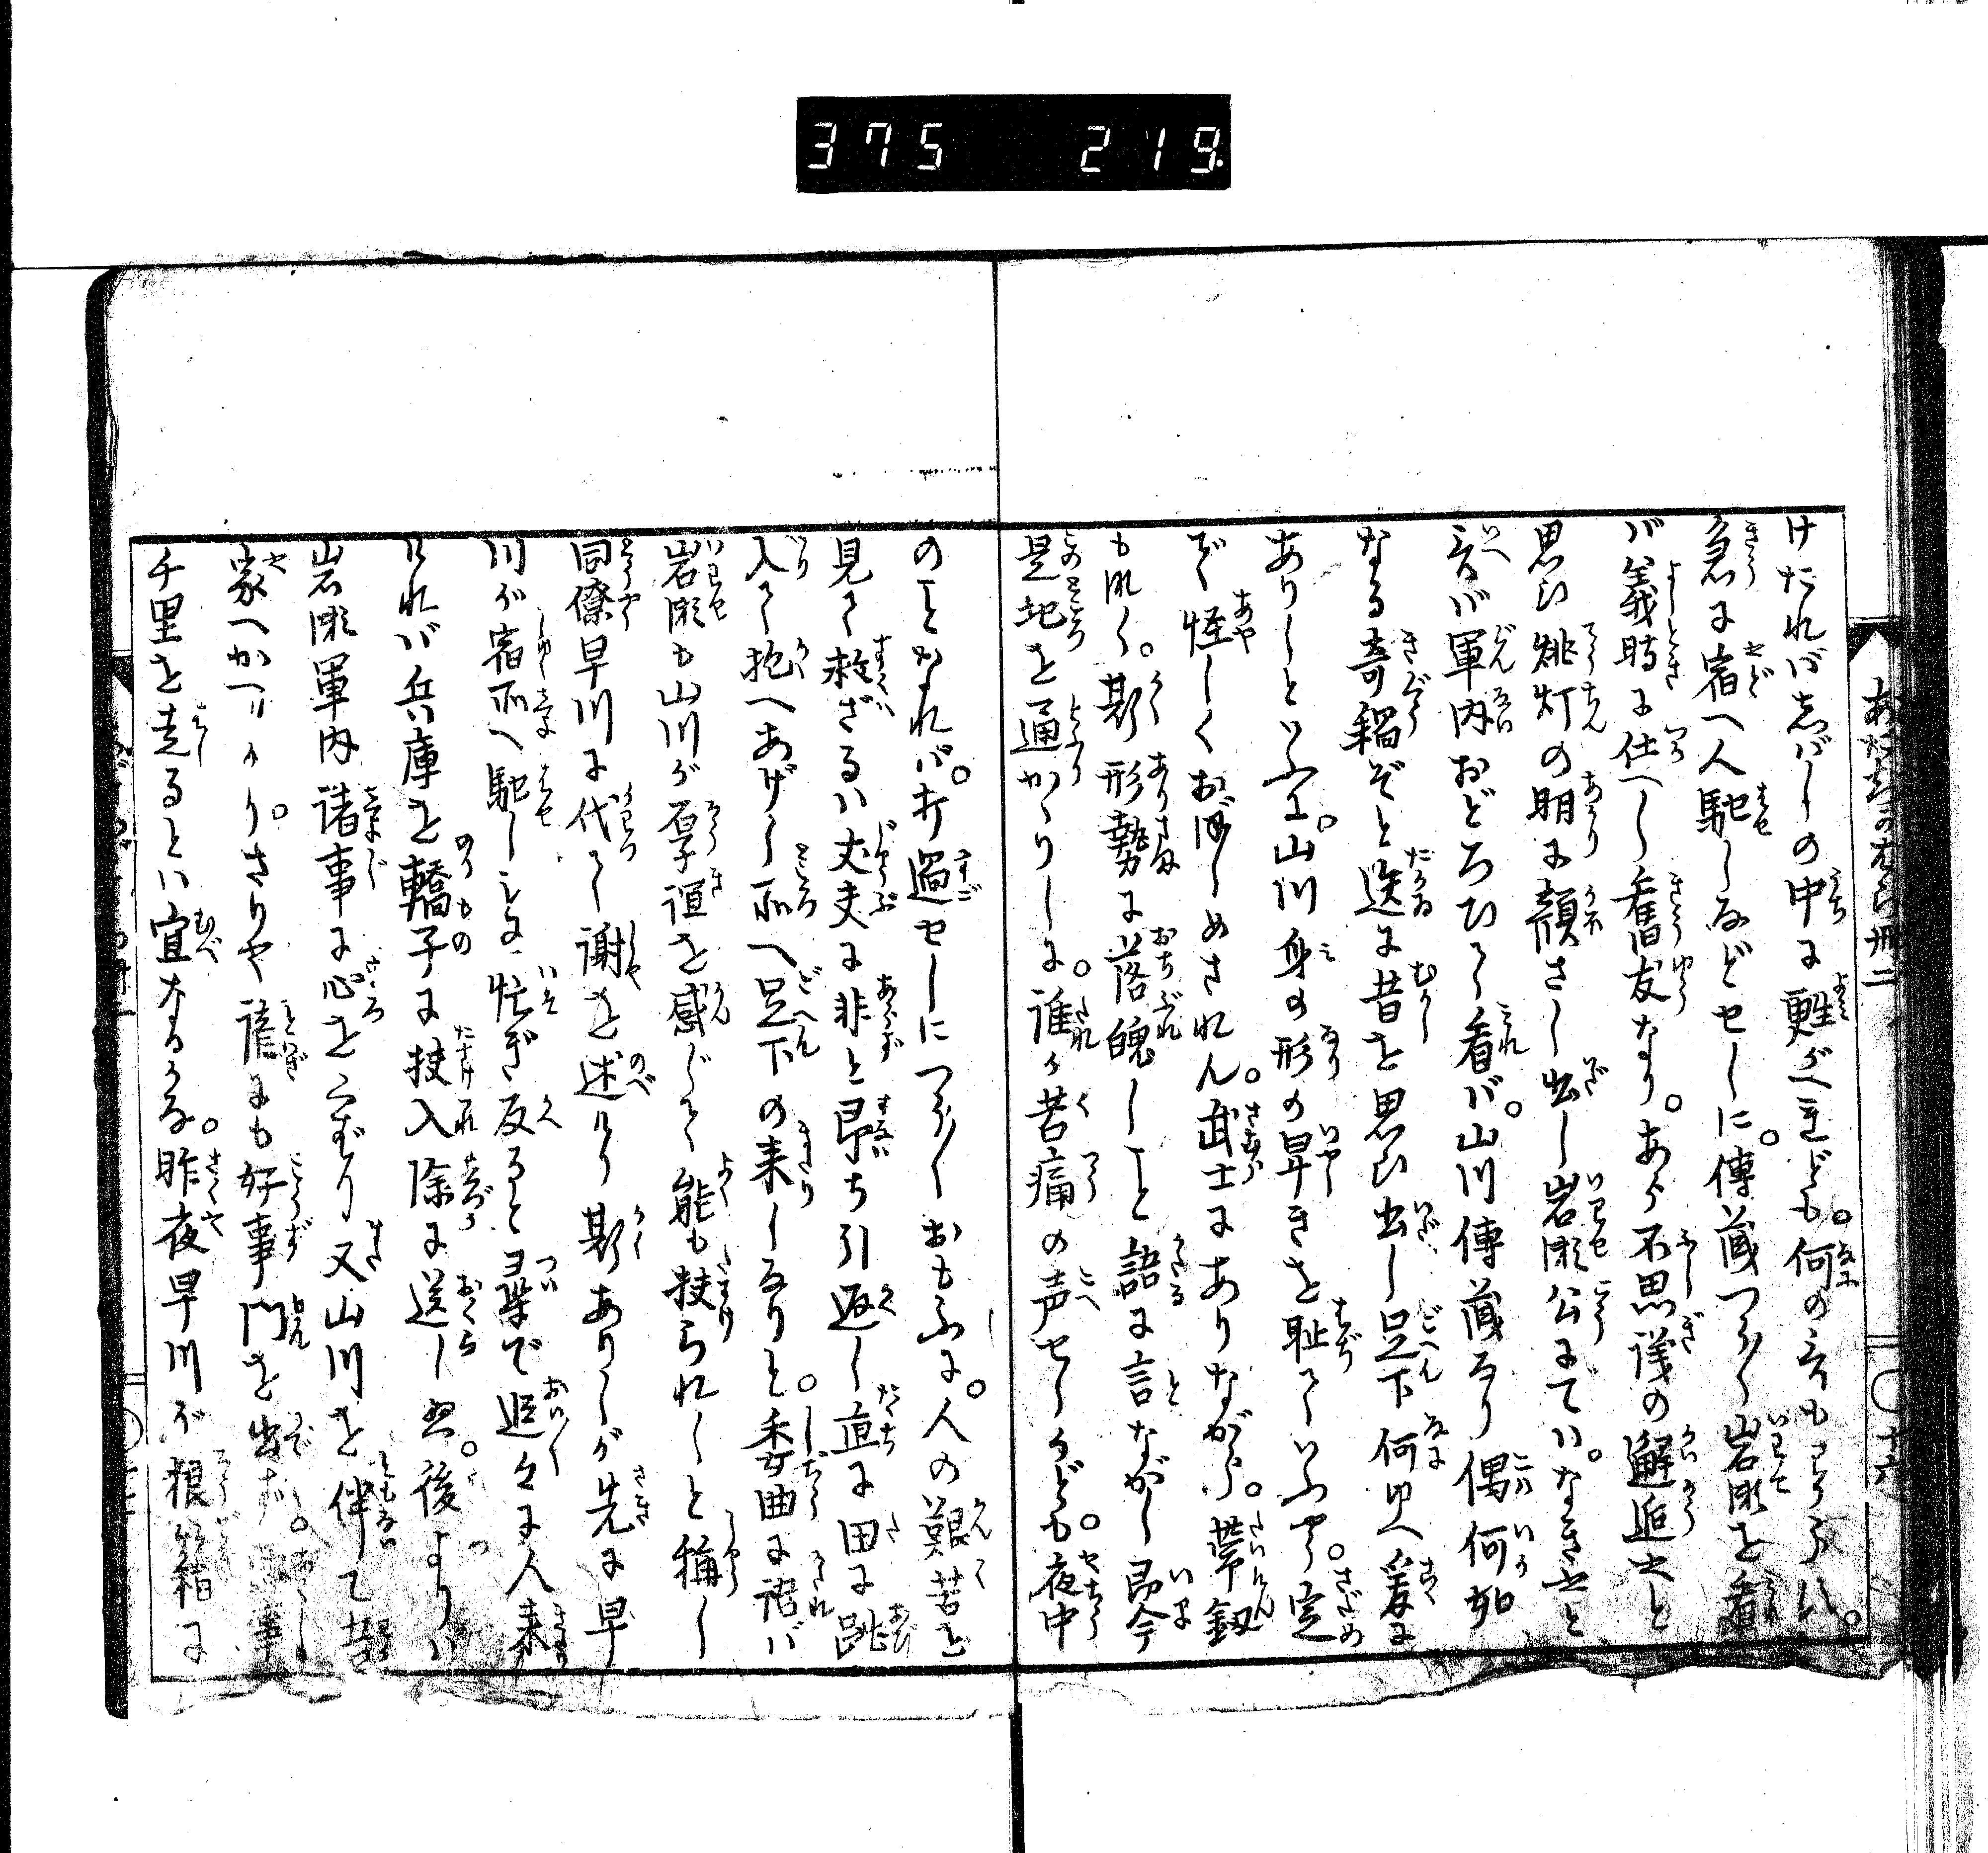 375 219
けたればしばしの中に甦がへれども。何の言もわらふ
急に宿へ人馳しなどせしに。傳蔵つら〳〵岩瀬を看
バ義時に仕へし舊友なり。あら不思議の邂逅やと
思ひ挑灯の明に顔さし出し岩瀬公までハ。なきやと
言バ軍内おどろひて看バ。山川傳蔵なり偶何如
なる奇縁ぞと迭に昔を思ひ出し足下何ゆへ爰に
ありしといふに。山川身の形の卑きを耻ていふやう定
ぞ怪しくおぼしめされん。武士にありながら。帯釼
もなく。斯形勢に落魄しこと語に言ながし即今
是地を通かゝりしに。誰が苦痛の声せしかども。夜中
のことなれバ。打過せしにつら〳〵おもふに。人の艱苦を
見て救ざるハ丈夫に非と即ち引返し直に田に跳
入て抱へあげし所へ足下の来しなりと。委曲に語バ
岩瀬も山川が厚誼を感じて能も扶られしと稱し
同僚早川に代て謝を述けり斯ありしが先に早
川が宿所へ馳しらに忙ぎ反ると羣で追々に人来
けれバ兵庫を轎子に扶入除に送しめ。後よりハ
岩瀬軍内諸事に心をくばり又山川を伴て
家へかへりけり。さりや諺にも好事門を出ず。
千里を走るとハ宜なるかな。昨夜早川が狼籍に